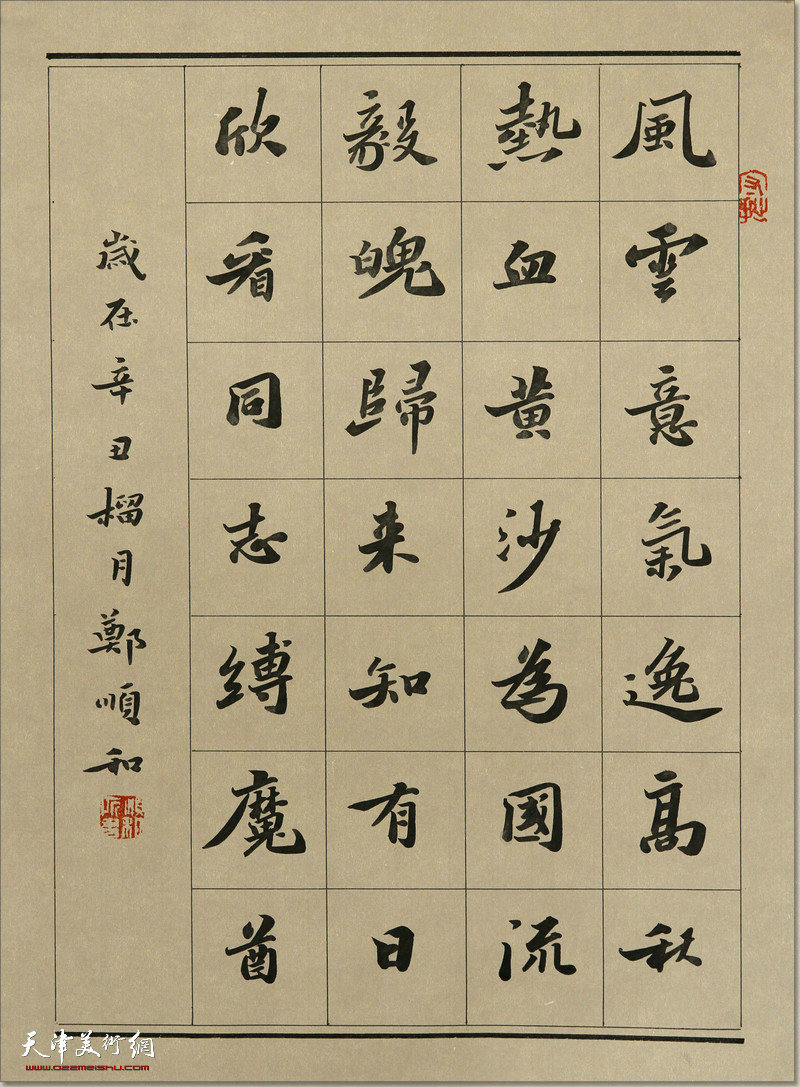 風雲意氣逸高秋
熱血黄沙為國流
毅魄歸来知有日
欣看同志縛魔酋
歲在辛丑榴月鄭順和
天津美術網
www.022meishu.com